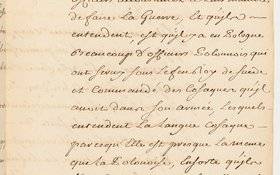 de faire la Guerre, Et qu'ils
entendent, est qu'il y a en Pologne
Beaucoup d'officiers Polonnois qui
ont servis sous le feu Roy de Suede
et Commandé des Cosaques qu'il
avoit dans son armée, lesquels
entendent la Langue Cosaque
parcequ'Elle est presque la meme
que la Polonoise, ensorte qu'ils